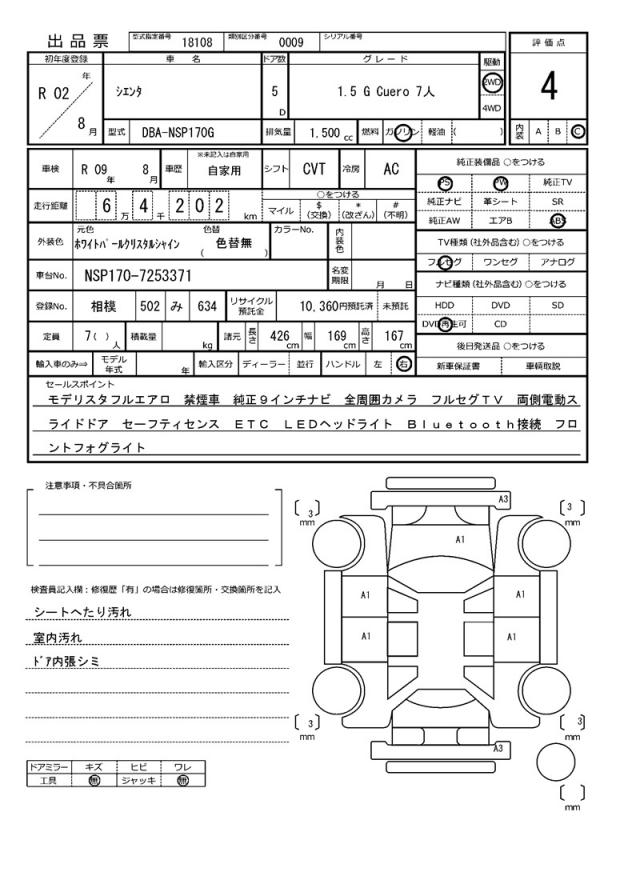 出品票 型式指定番号 18108 類別区分番号 0009 シリアル番号
評価点
4
内装 A B C
初年度登録 車名 ドア数 グレード 駆動
R 02 年 8 月 シエンタ 5 D 1.5 G Cuero 7人 2WD 4WD
型式 DBA-NSP170G 排気量 1.500 cc 燃料 ガソリン 軽油 ( )
車検 R 09 年 8 月 車歴 ※未記入は自家用 自家用 シフト CVT 冷房 AC
走行距離 6 万 4 千 2 0 2 km ○をつける マイル $ (交換) * (改ざん) # (不明)
外装色 元色 ホワイトパールクリスタルシャイン 色替 ( 色替無 ) カラーNo. 内装色
車台No. NSP170-7253371 名変期限 月 日
登録No. 相模 502 み 634 リサイクル預託金 10,360円預託済 未預託
定員 7( ) 人 積載量 kg 諸元 長さ 426 cm 幅 169 cm 高さ 167 cm
輸入車のみ⇒ モデル年式 年 輸入区分 ディーラー 並行 ハンドル 左 右
純正装備品 ○をつける
PS PW 純正TV
純正ナビ 革シート SR
純正AW エアB ABS
TV種類 (社外品含む) ○をつける
フルセグ ワンセグ アナログ
ナビ種類 (社外品含む) ○をつける
HDD DVD SD
DVD再生可 CD
後日発送品 ○をつける
新車保証書 車輌取説
セールスポイント
モデリスタフルエアロ 禁煙車 純正9インチナビ 全周囲カメラ フルセグTV 両側電動ス
ライドドア セーフティセンス ETC LEDヘッドライト Bluetooth接続 フロ
ントフォグライト
注意事項・不具合箇所
検査員記入欄：修復歴「有」の場合は修復箇所・交換箇所を記入
シートへたり汚れ
室内汚れ
ドア内張シミ
ドアミラー キズ ヒビ ワレ
工具 無 ジャッキ 無
A3
3 mm
3 mm
A1
A1 A1
A1 A1
3 mm
3 mm
A3
mm